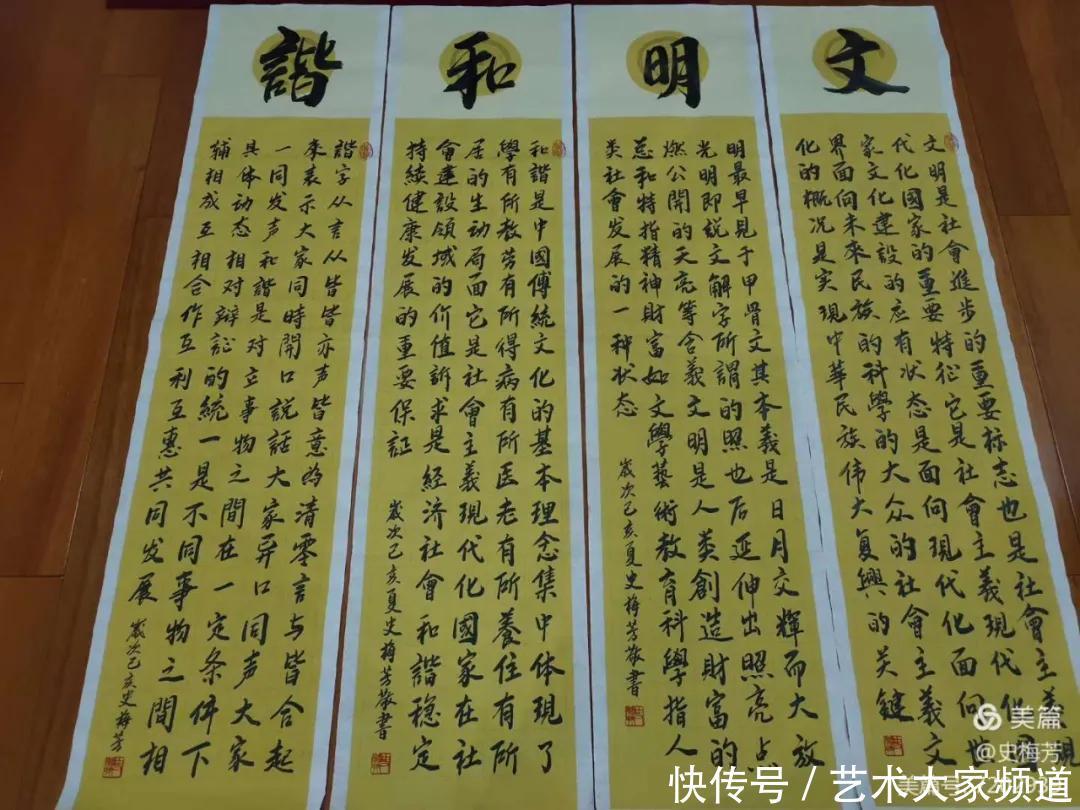 文
文明是社會進步的重要标志也是社會主義現
代化國家的重要特征它是社會主義現代化國
家文化建設的应有狀态是面向現代化面向世
界面向未來民族的科學的大众的社會主義文
化的概况是实現中華民族伟大复興的关鍵
明
明最早見于甲骨文其本義是日月交輝而大放
光明即説文解字所謂的照也后延伸出照亮点
燃公開的天亮等含義文明是人类創造財富的
总和特指精神財富如文學藝術教育科學指人
类社會发展的一种状态
歲次己亥夏史梅芳敬書
和
和諧是中國傳統文化的基本理念集中体現了
學有所教劳有所得病有所医老有所養住有所
居的生动局面它是社會主義現代化國家在社
會建設領域的价值訴求是经济社會和諧稳定
持續健康发展的重要保証
歲次己亥夏史梅芳敬書
諧
諧字从言从皆皆亦声皆意为清零言与皆合起
來表示大家同時開口説話大家异口同声大家
一同发声和諧是对立事物之間在一定条件下
具体动态相对辩証的統一是不同事物之間相
辅相成互相合作互利互惠共同发展
歲次己亥史梅芳
美篇
@史梅芳
美篇号
快传号/艺术大家频道